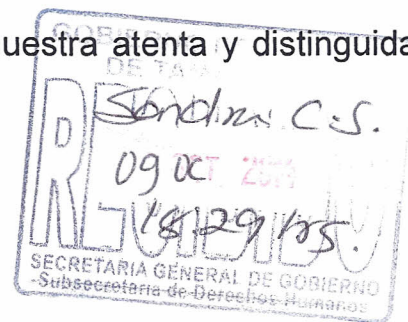 uestra atenta y distinguida
GOBIERNO
DE TA
RECIBIDO
Sandra C.S.
09 OCT
15:29 hrs.
SECRETARIA GENERAL DE GOBIERNO
-Subsecretaria de Derechos Humanos